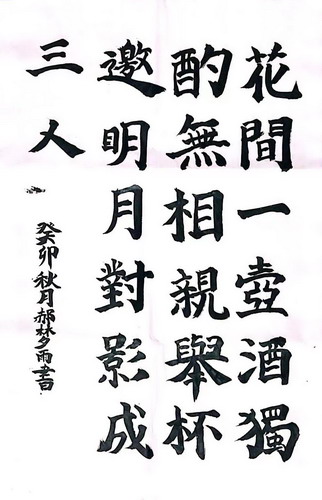 花間一壺酒獨
酌無相親舉杯
邀明月對影成
三人
癸卯秋月郝梦雨書